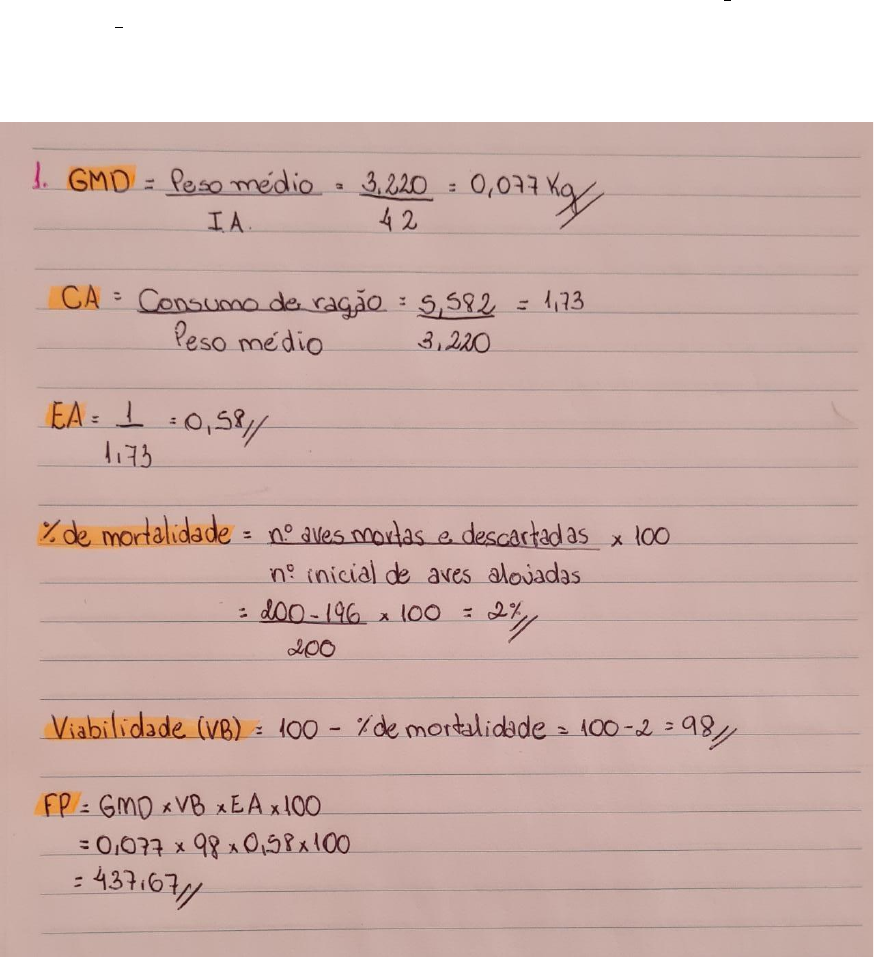 1. GMD = Peso médio = 3,220 = 0,077 Kg
I A. 42
CA = Consumo de ração = 5,582 = 1,73
Peso médio 3,220
EA = 1 = 0,58
1,73
% de mortalidade = nº aves mortas e descartadas x 100
nº inicial de aves alojadas
= 200 - 196 x 100 = 2%
200
Viabilidade (VB) = 100 - % de mortalidade = 100 - 2 = 98
FP = GMD x VB x EA x 100
= 0,077 x 98 x 0,58 x 100
= 437,67